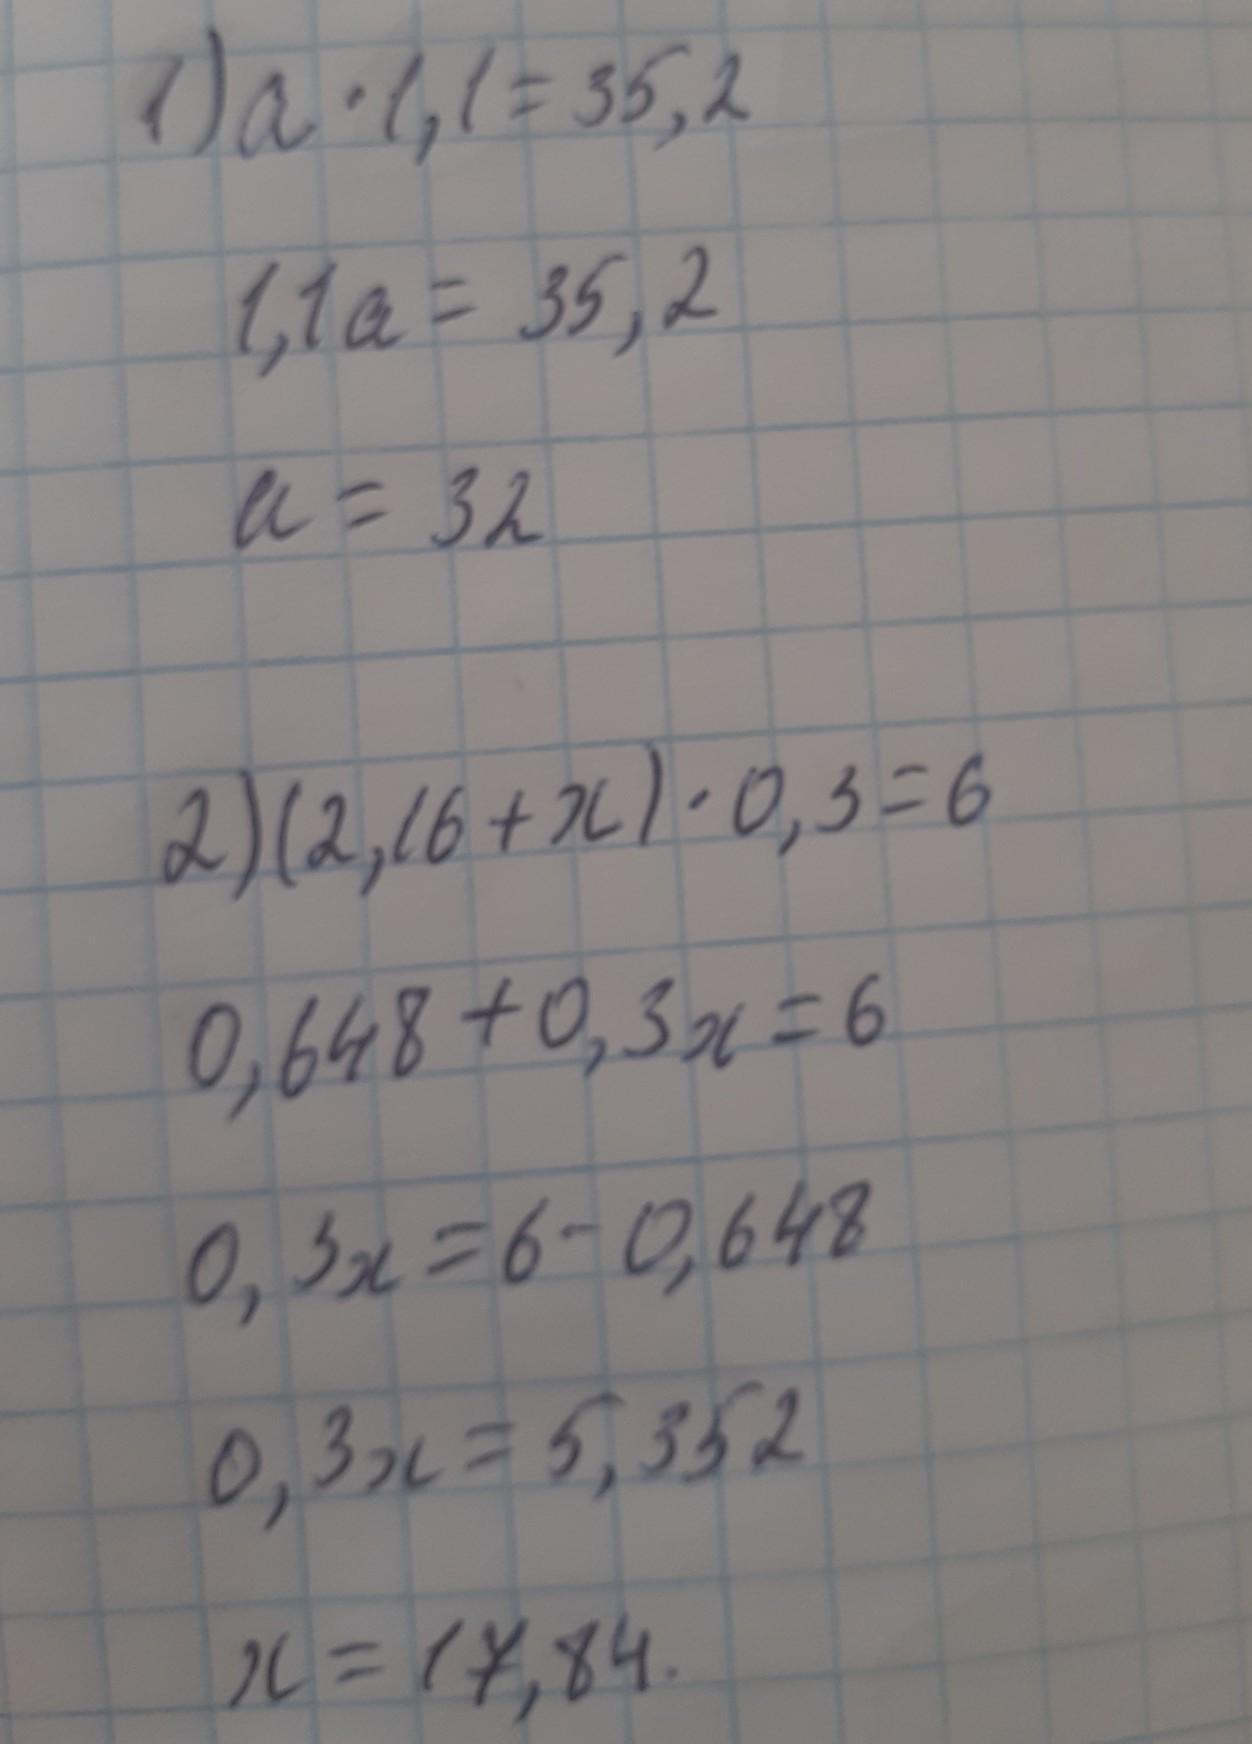 1) a · 1,1 = 35,2
1,1a = 35,2
a = 32
2) (2,16 + x) · 0,3 = 6
0,648 + 0,3x = 6
0,3x = 6 - 0,648
0,3x = 5,352
x = 17,84.